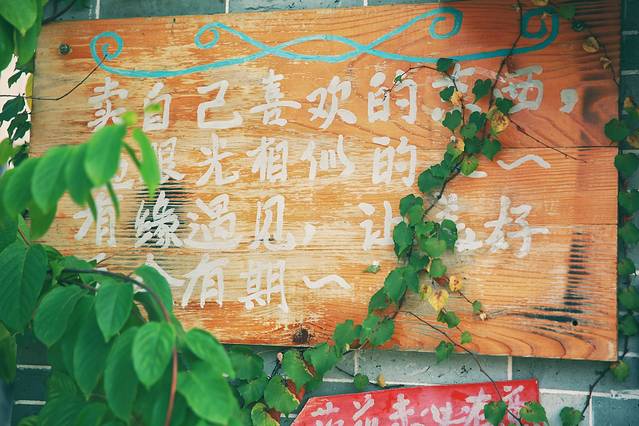 卖自己喜欢的东西，
眼光相似的人~
有缘遇见，让美好
有期~